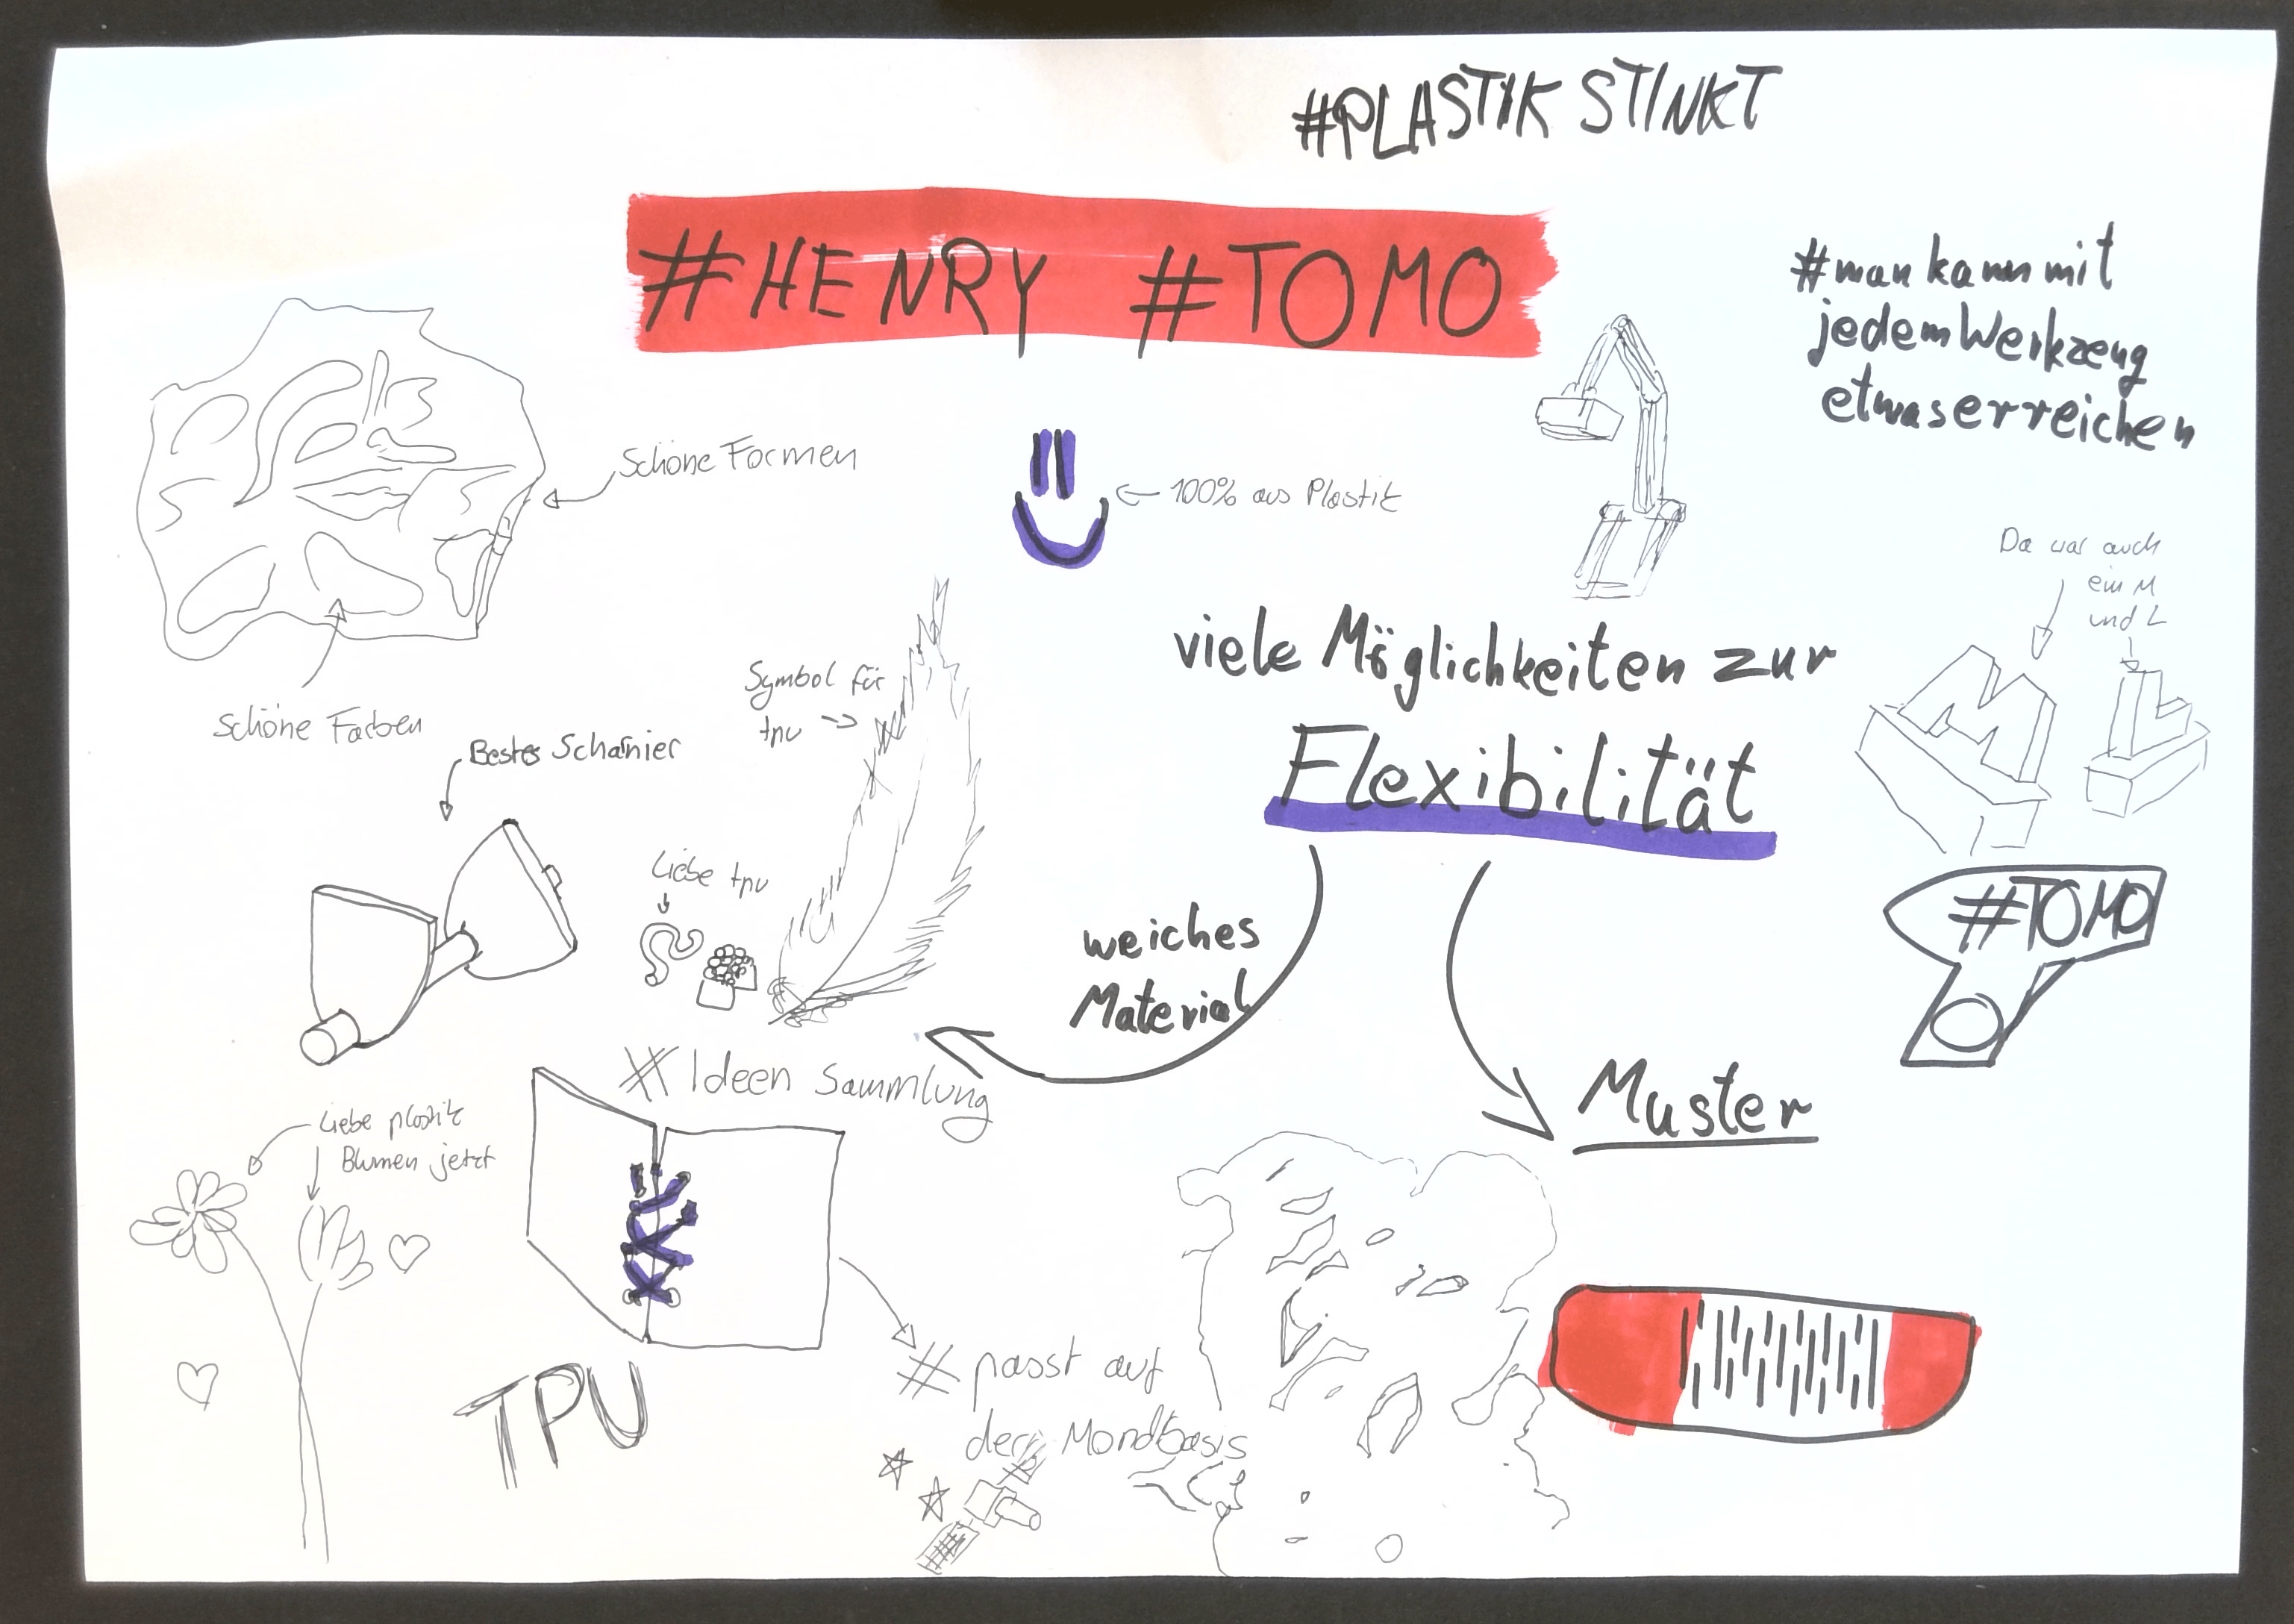 #PLASTIK STINKT
#HENRY #TOMO
#man kann mit
jedem Werkzeug
etwas erreichen
Schöne Formen
100% aus Plastik
Da war auch
ein M
und L
M L
viele Möglichkeiten zur
Flexibilität
Symbol für
tpu
Schöne Farben
Bestes Scharnier
Liebe tpu
weiches
Material
#TOMO
# Ideen Sammlung
Muster
Liebe plastik
Blumen jetzt
TPU
# passt auf
der Mondbasis